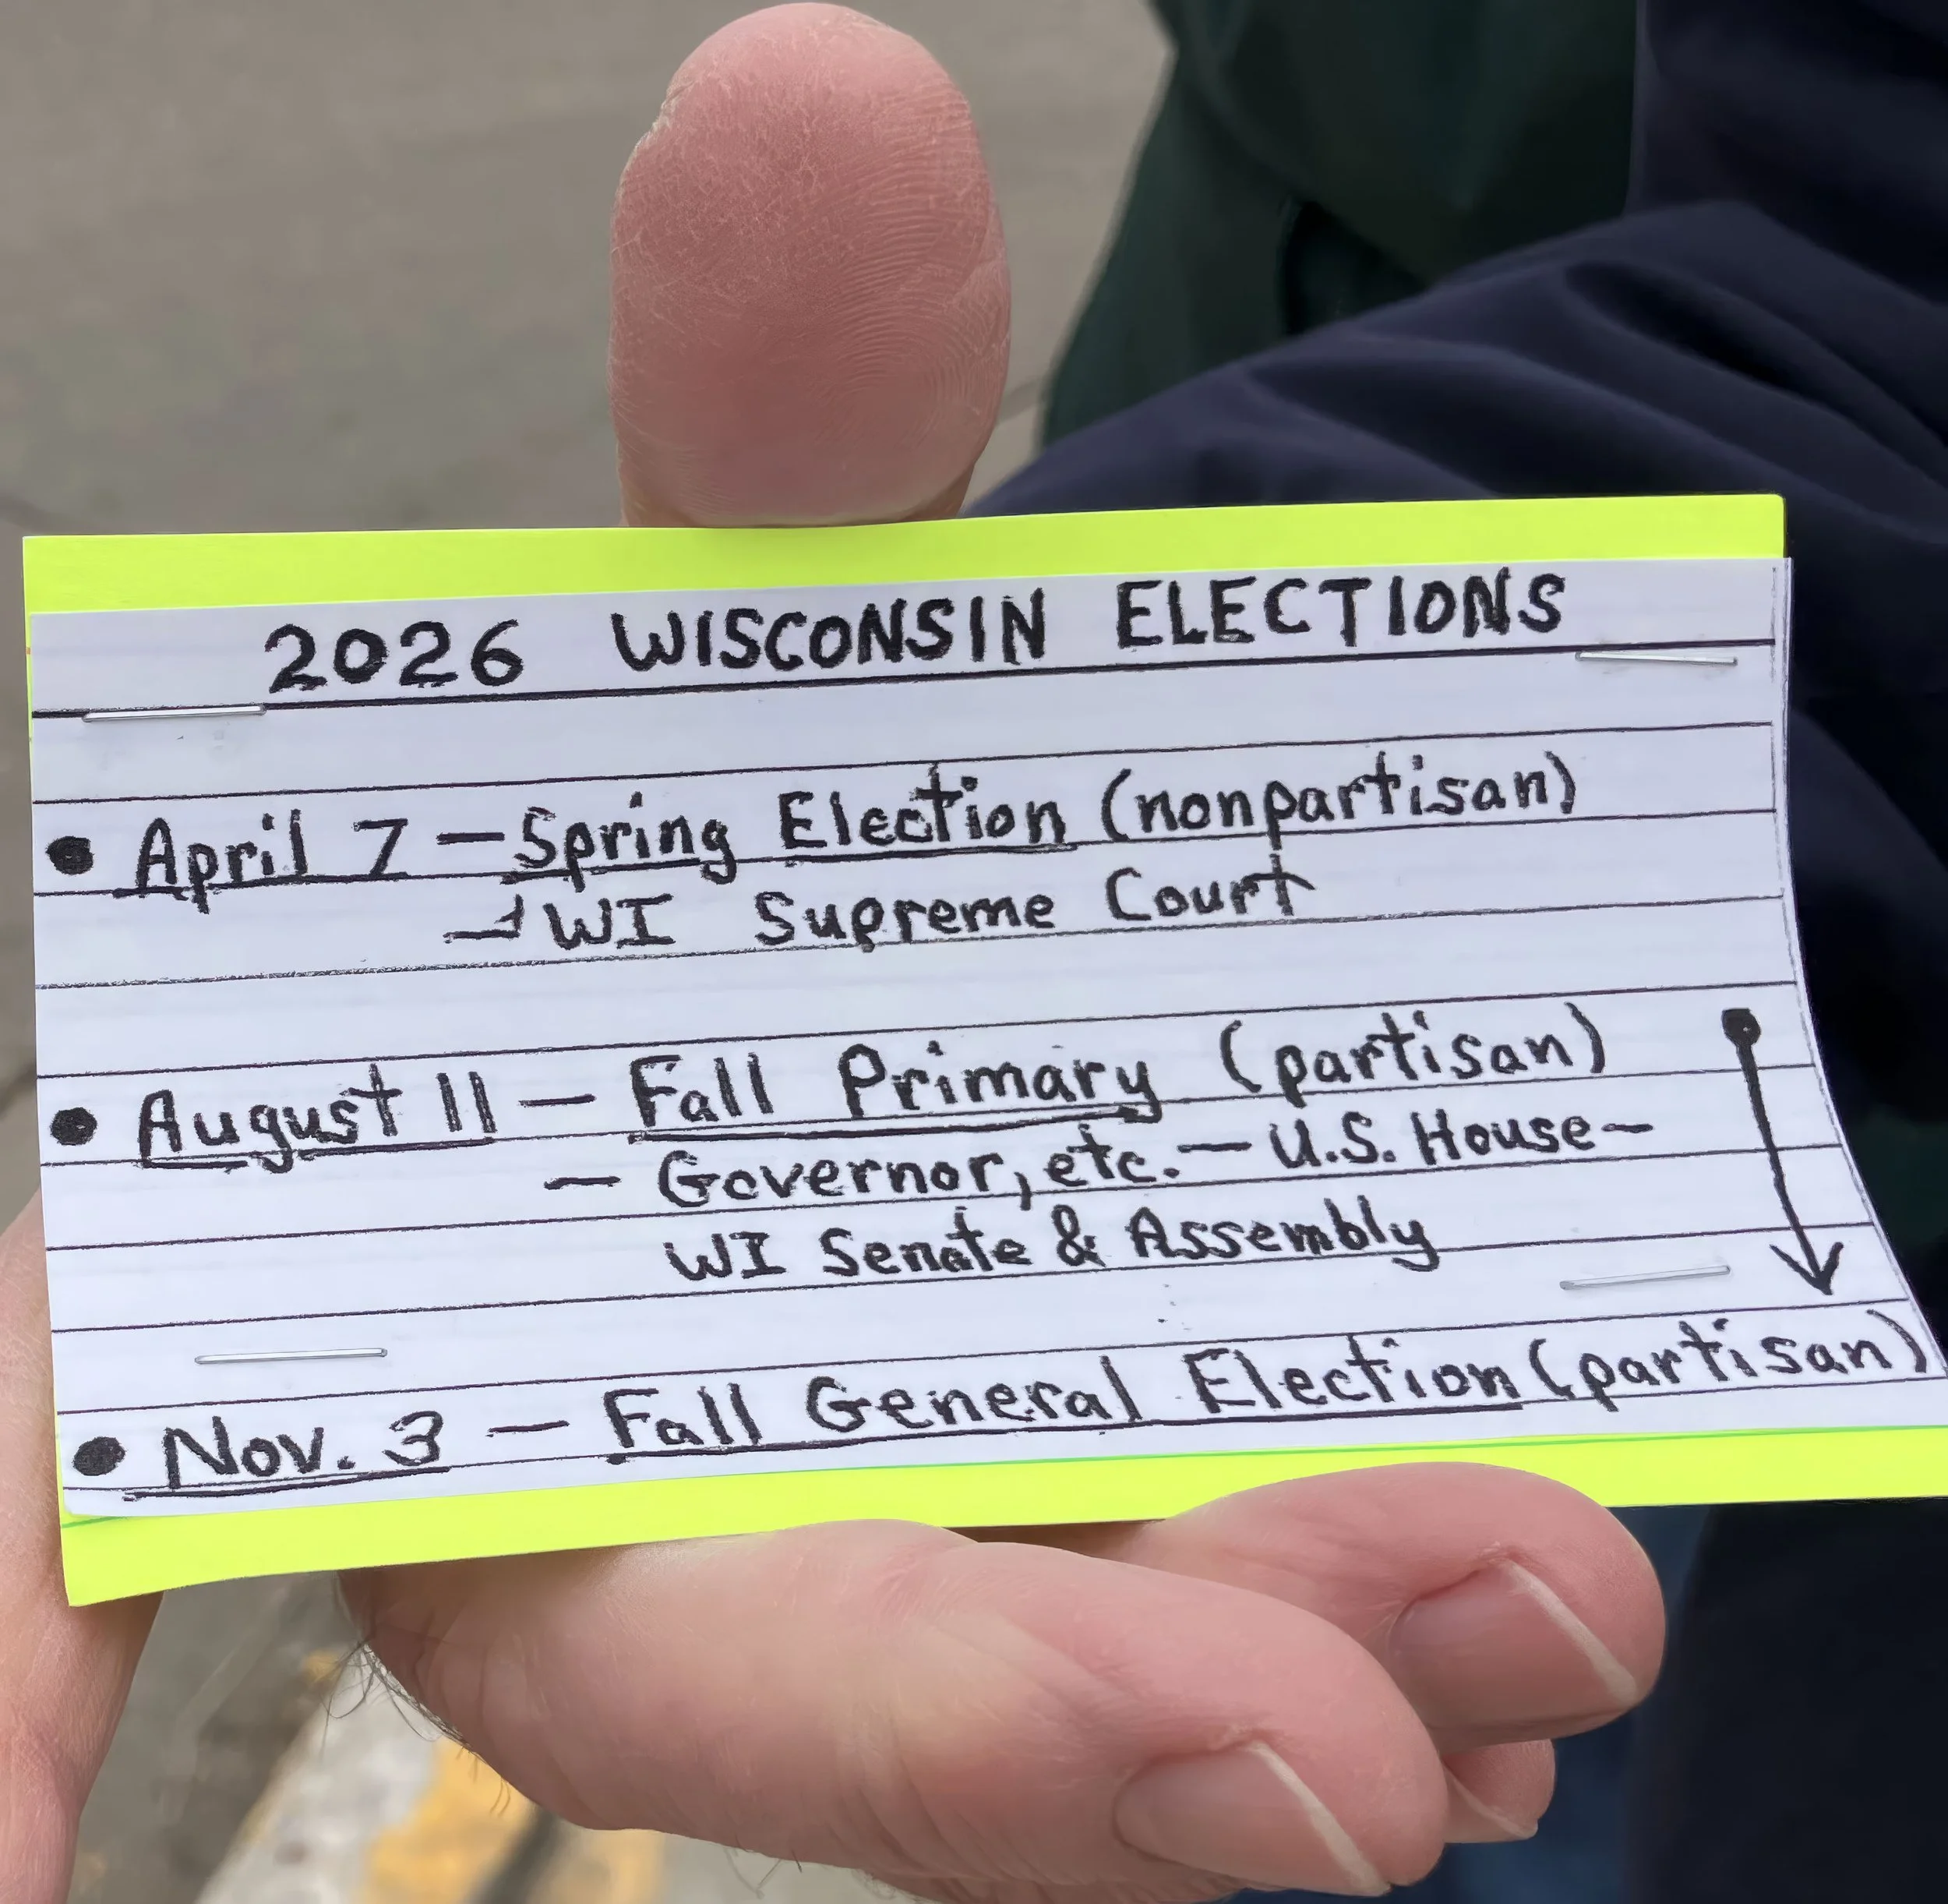 2026 WISCONSIN ELECTIONS
• April 7 — Spring Election (nonpartisan)
WI Supreme Court
• August 11 — Fall Primary (partisan)
— Governor, etc. — U.S. House —
WI Senate & Assembly
• Nov. 3 — Fall General Election (partisan)